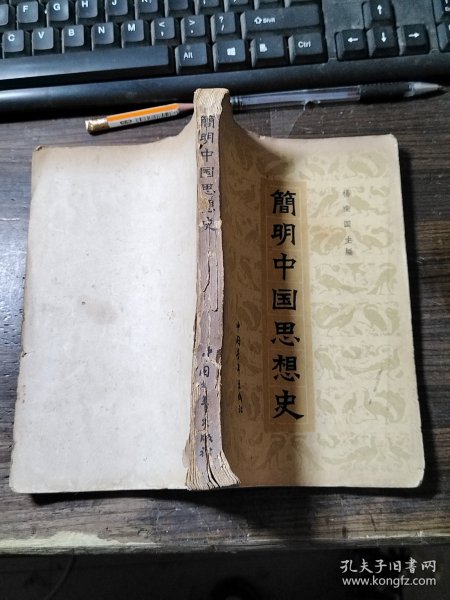 簡明中国思想史
楊榮国主編
中国青年出版社
簡明中国思想史
中国青年出版社
Shift
Ctrl
Alt
Alt
Ctrl
孔夫子旧书网
www.kongfz.com